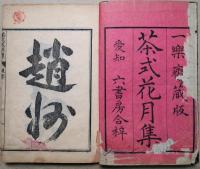 一樂齋蔵版
茶式花月集
愛知 六書房合梓
趙州